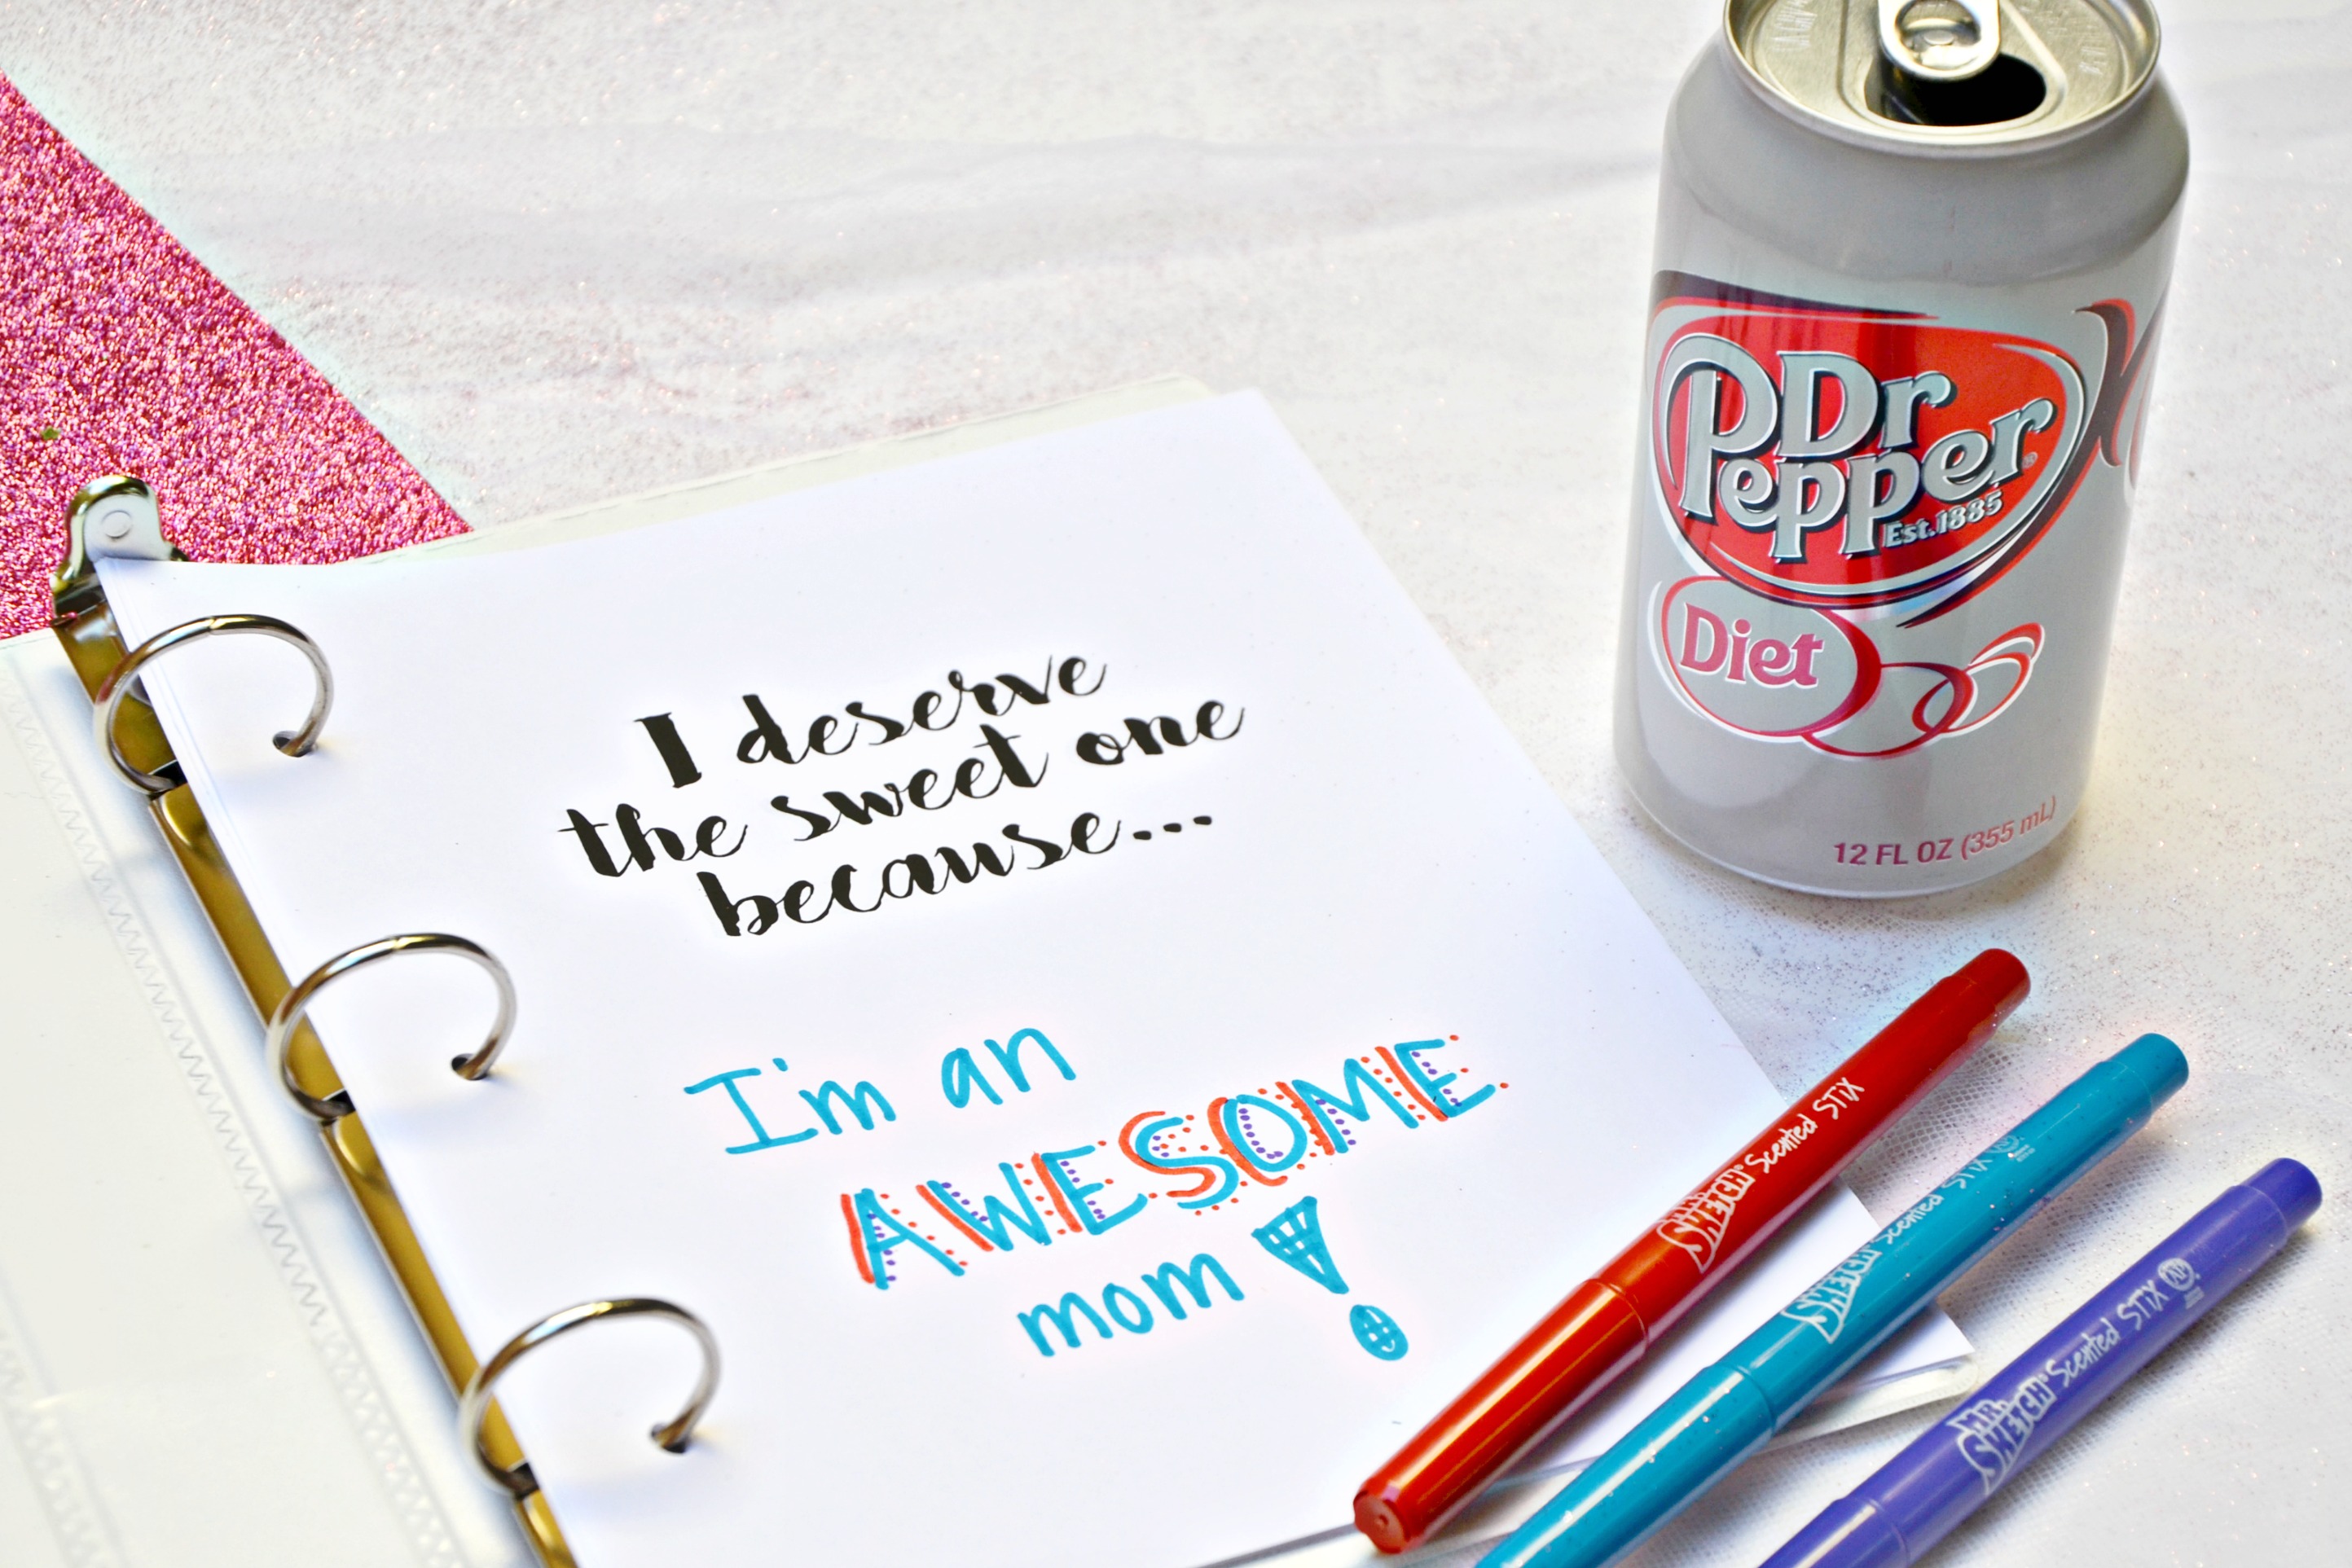 I deserve
the sweet one
because...
I'm an
AWESOME
mom!
Dr
Pepper
Est. 1885
Diet
12 FL OZ (355 mL)
MR. SKETCH® Scented STIX
SKETCH Scented STIX
MR. SKETCH® Scented STIX AP